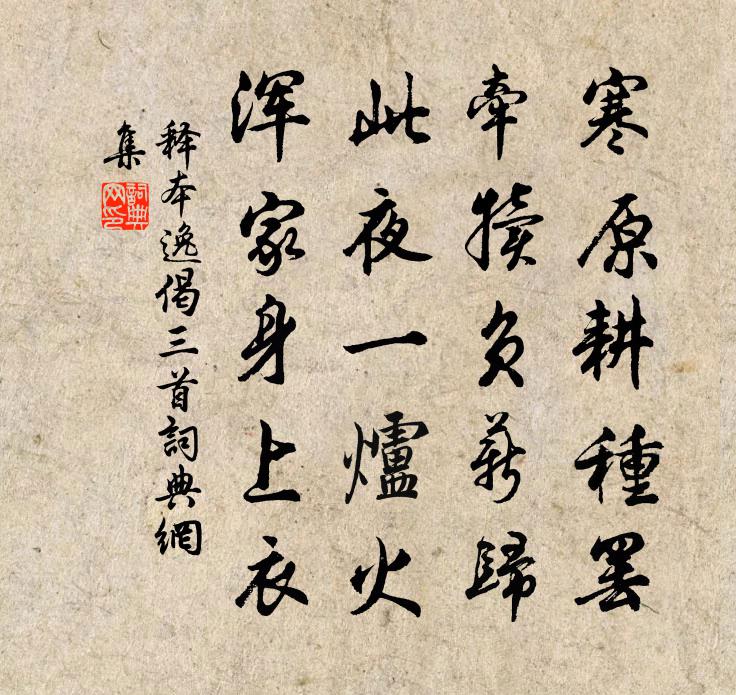 寒原耕種罢
牵犢负薪歸
此夜一爐火
浑家身上衣
释本逸偈三首詞典網
集
詞典
网印